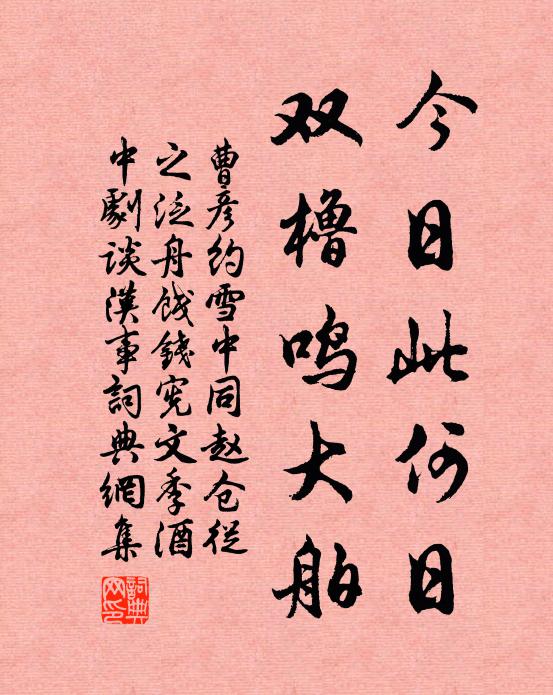 今日此何日
双橹鸣大舶
曹彦约雪中同赵仓从
之泛舟饯钱宪文季酒
中剧谈汉事词典網集
詞典网印